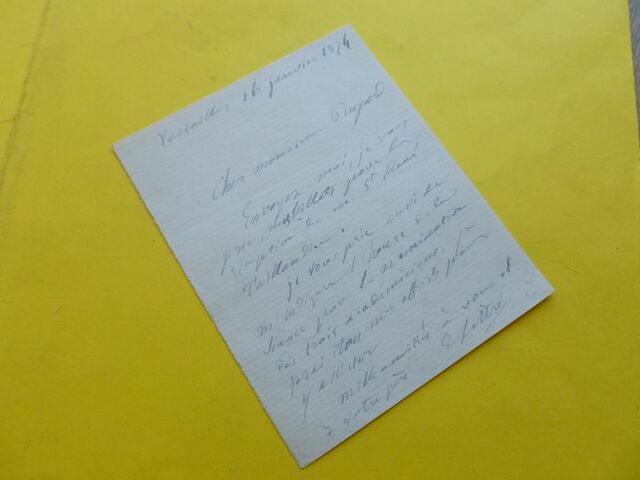 Versailles, 16 janvier 1874
Cher monsieur Pingard
Envoyez moi, je vous
prie, mes billets pour la
réception de M. St René
Taillandier.
je vous prie aussi de
m'indiquer l'heure de la
séance pour la nomination
des trois académiciens. je
ferai tous mes efforts pour
y assister
mille amitiés à vous et
à votre père
E Littré